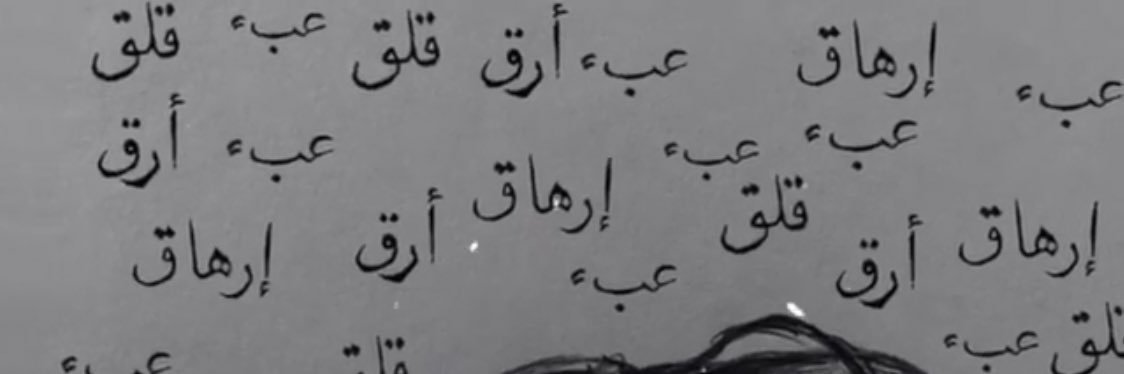 عبء إرهاق عبء أرق قلق عبء قلق
عبء عبء عبء أرق
إرهاق أرق قلق إرهاق أرق إرهاق
عبء
قلق عبء قلق عبء